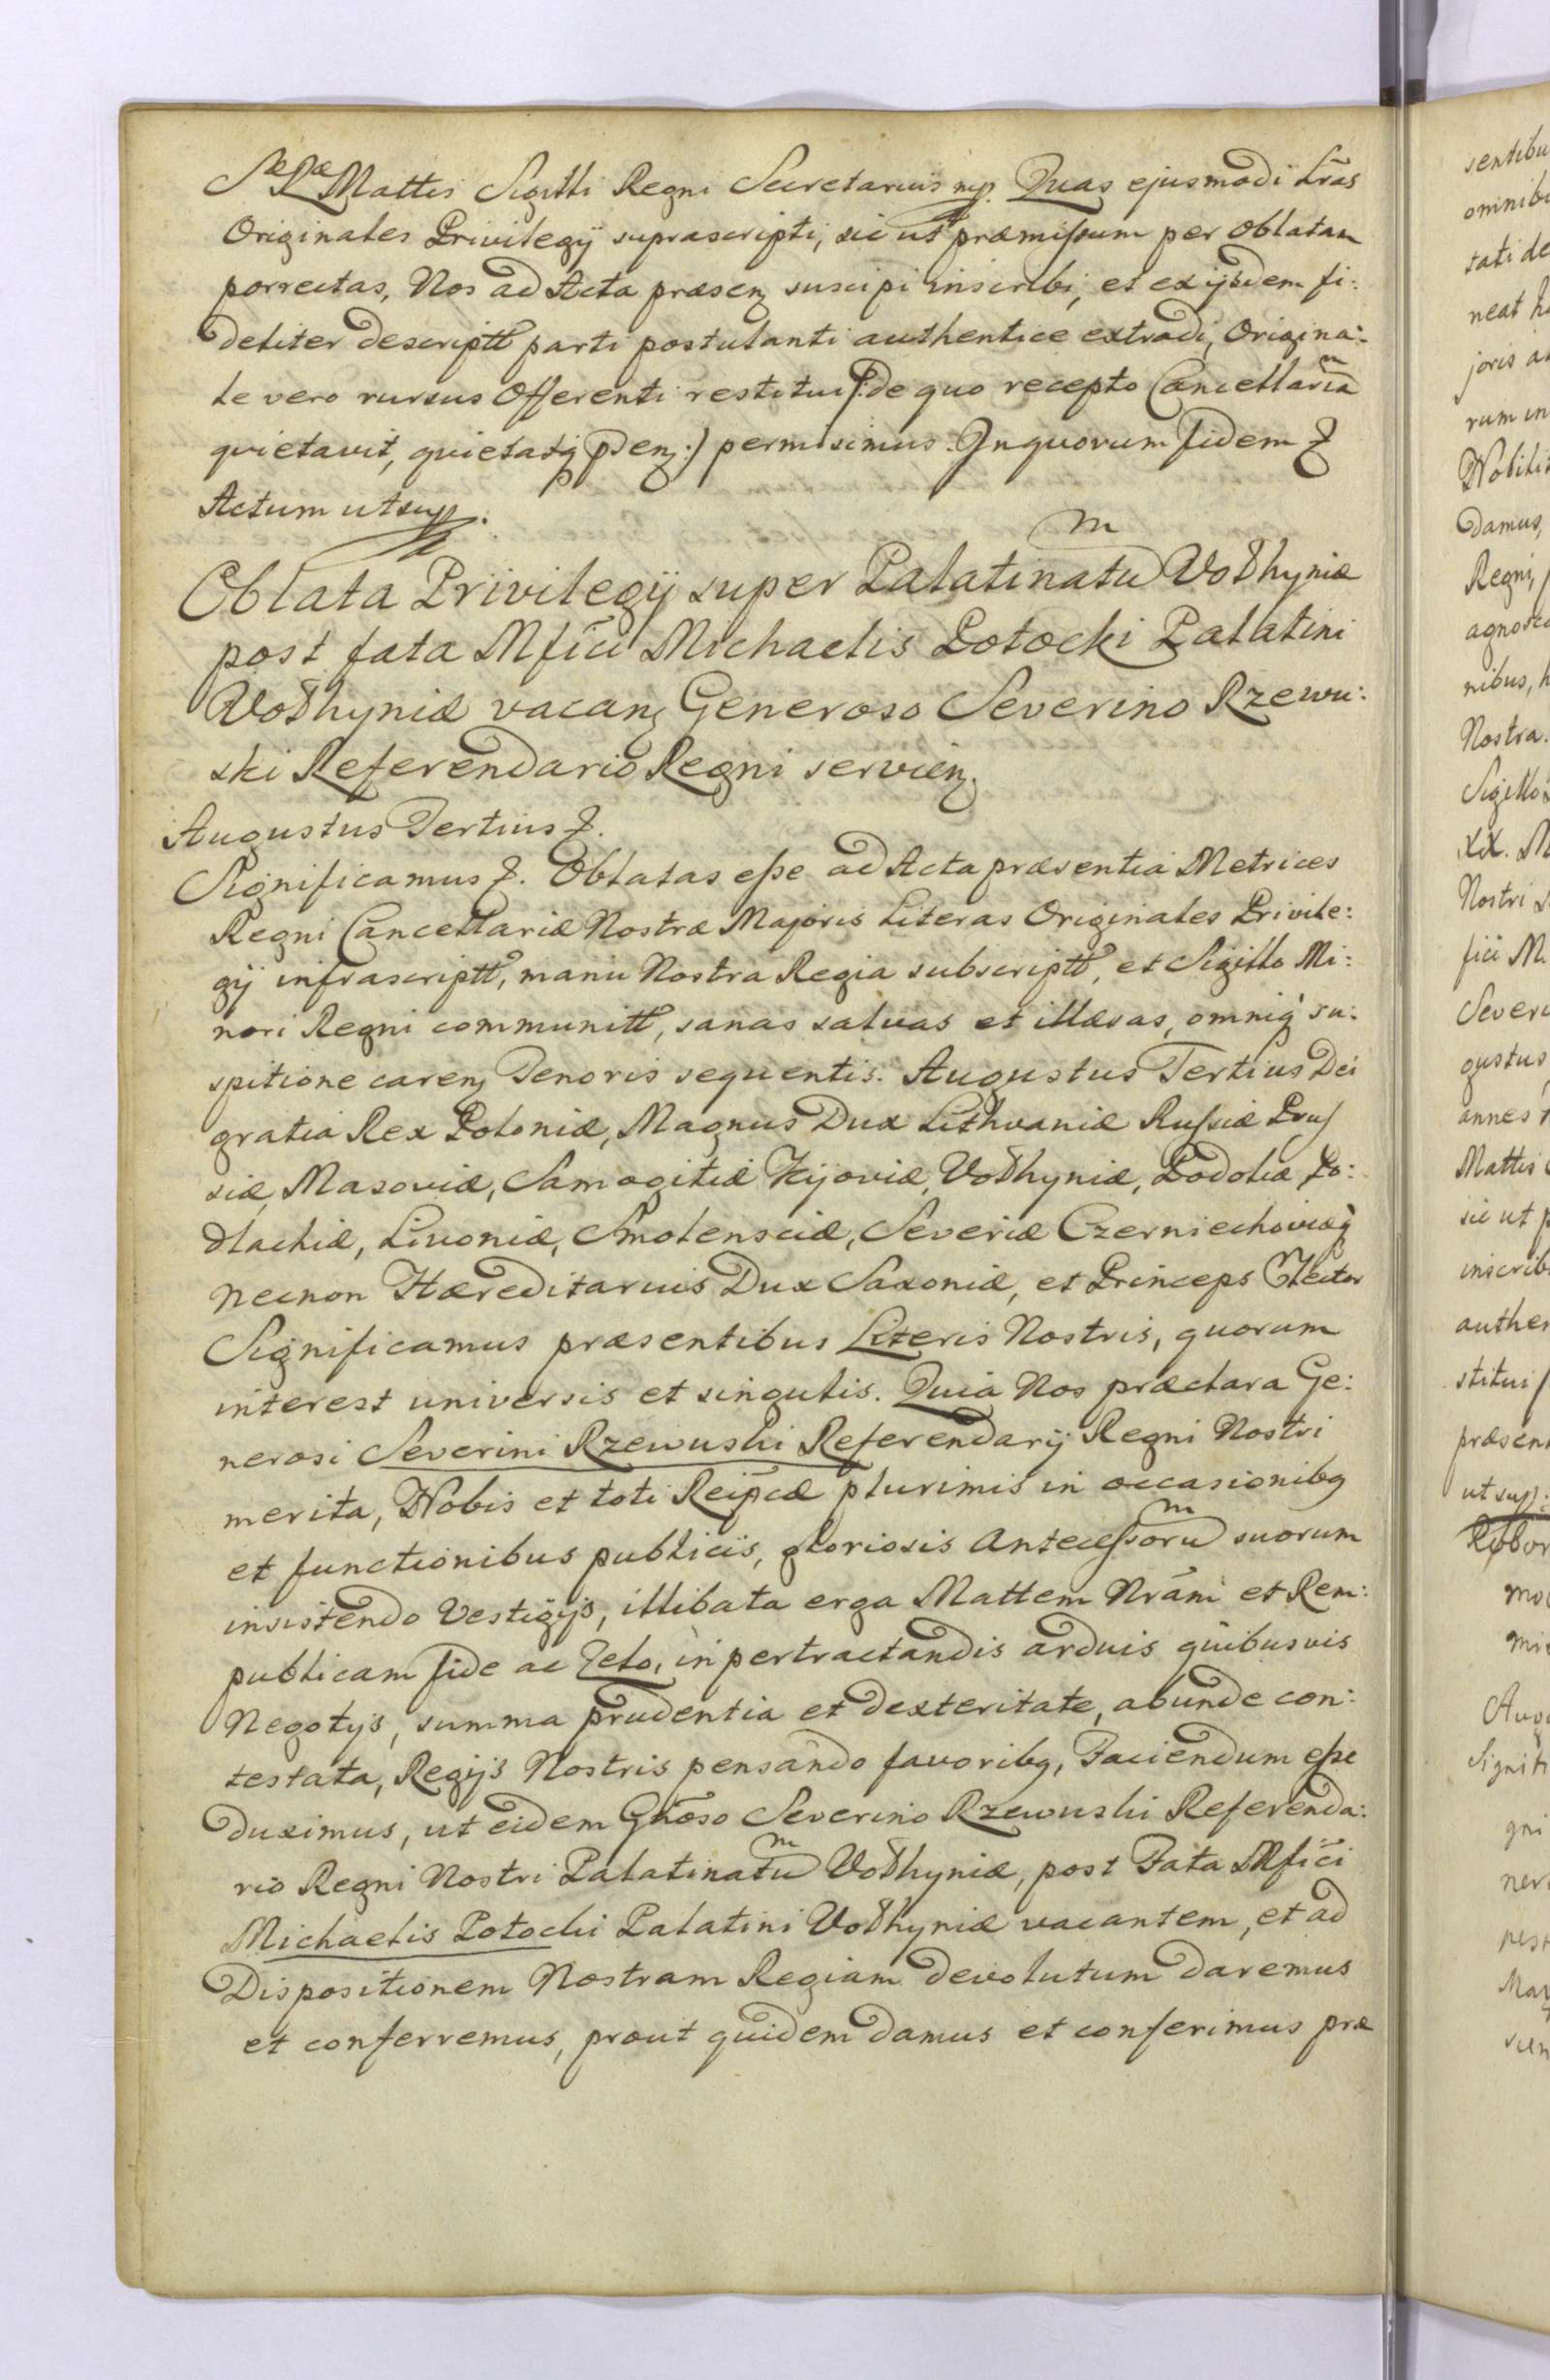 Sæ Ræ Mattis Sigilli Regni Secretarius mp. Quas ejusmodi Lrãs
Originales Privilegÿ suprascripti, sic ut præmissum per oblatam
porrectas, Nos ad Acta præsenꝫ suscipi inscribi, et ex ijsdem fi:
deliter descriptt parti postulanti authentice extradi, Origina:
le vero rursus Offerenti restitui /: de quo recepto Cancellariam
quietavit, quietatq̃ pñsenꝫ :/ permisimus. In quorum fidem ꝛ
Actum ut sup.
Oblata Privilegij super Palatinatum Volhyniæ
post fata Mfici Michaelis Potocki Palatini
Volhyniæ vacanꝫ Generoso Severino Rzewu:
ski Referendario Regni servienꝫ.
Augustus Tertius ꝛ.
Significamus ꝛ. Oblatas esse ad Acta præsentia Metrices
Regni Cancellariæ Nostræ Majoris Literas Originales Privile:
gij infrascriptt, manu Nostra Regia subscriptt, et Sigillo Mi:
nori Regni communitt, sanas salvas et illæsas, omniq̀ su:
spitione carenꝫ Tenoris sequentis. Augustus Tertius Dei
gratia Rex Poloniæ, Magnus Dux Lithvaniæ Russiæ Prus
siæ, Masoviæ, Samogitiæ Kijoviæ, Volhyniæ, Podoliæ Po:
dlachiæ, Livoniæ, Smolensciæ, Severiæ Czerniechoviæq̀
necnon Hæreditarius Dux Saxoniæ, et Princeps Elector
Significamus præsentibus Literis Nostris, quorum
interest universis et singulis. Quia Nos præclara Ge:
nerosi Severini Rzewuski Referendarÿ Regni Nostri
merita, Nobis et toti Reipcæ plurimis in occasionibq
et functionibus publicis, gloriosis Antecessorum suorum
insistendo Vestigijs, illibata erga Mattem Nrãm et Rem:
publicam fide ac Zelo, in pertractandis arduis quibusvis
Negotÿs, summa prudentia et dexteritate, abunde con:
testata, Regijs Nostris pensando favoribq, Faciendum esse
duximus, ut eidem Gñoso Severino Rzewuski Referenda:
rio Regni Nostri Palatinatum Volhyniæ, post Fata Mfici
Michaelis Potocki Palatini Volhyniæ vacantem, et ad
Dispositionem Nostram Regiam devolutum daremus
et conferremus, prout quidem damus et conferimus præ